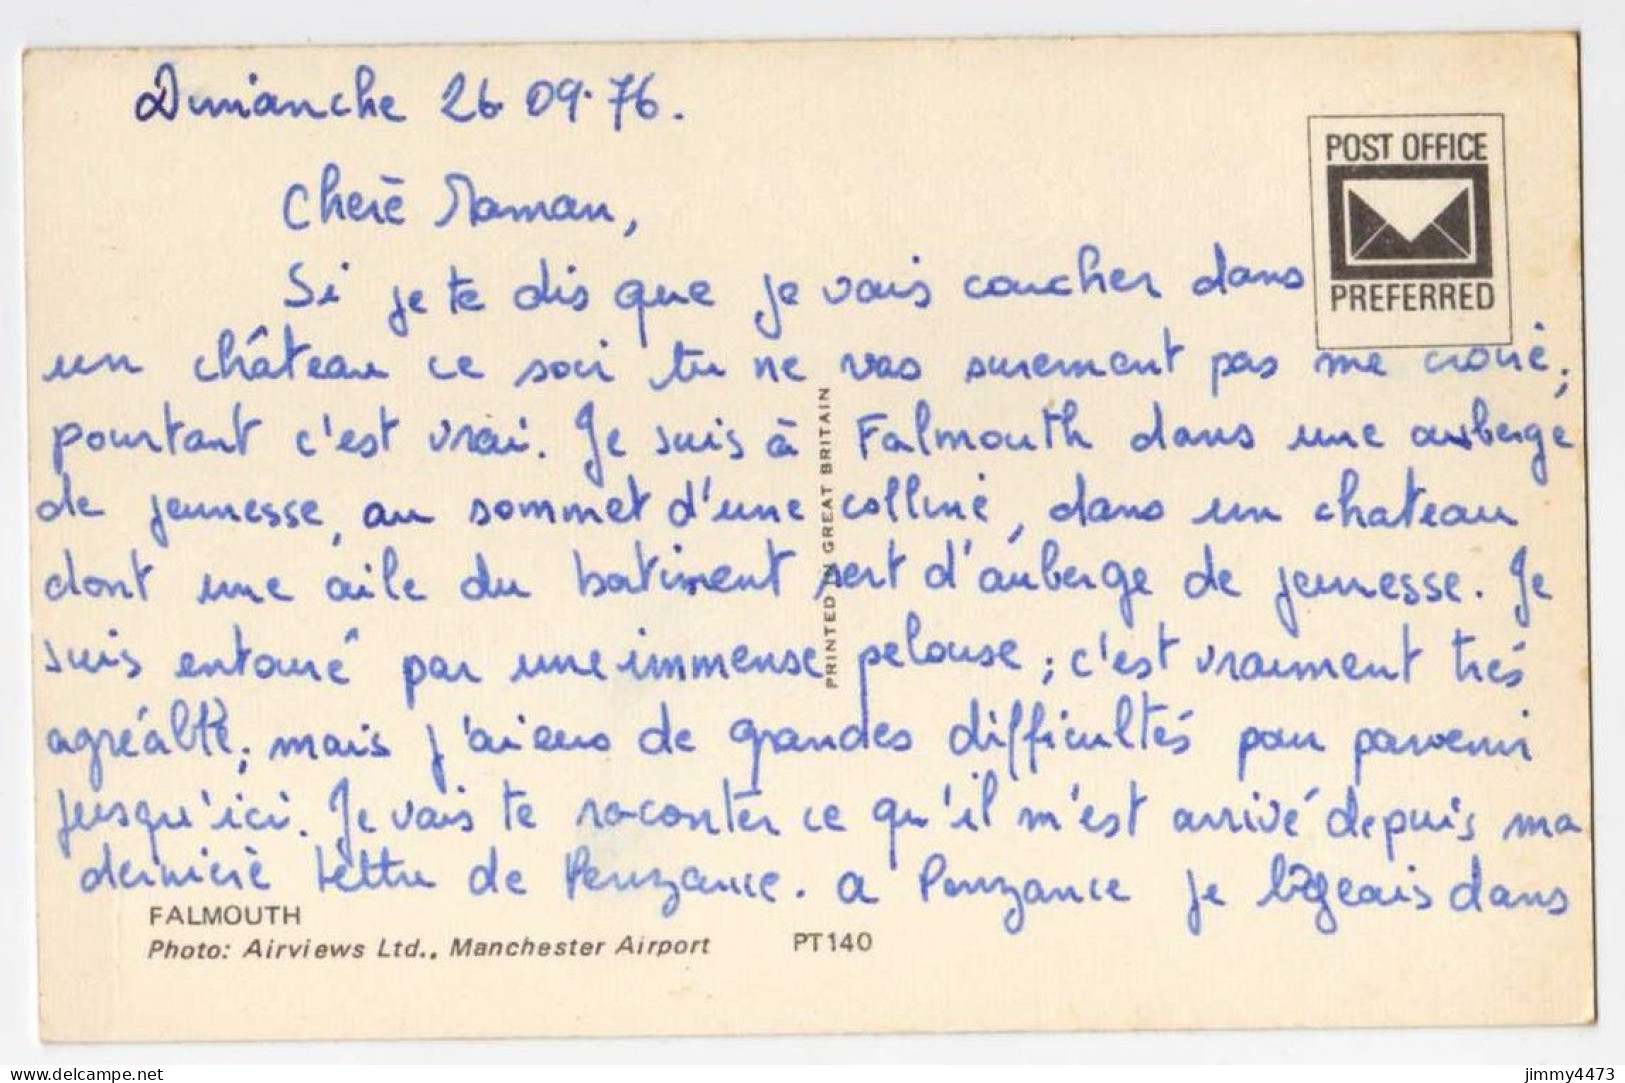 Dimanche 26.09.76.
Chère Maman,
Si je te dis que je vais coucher dans
un château ce soir tu ne vas surement pas me croire,
pourtant c'est vrai. Je suis à Falmouth dans une auberge
de jeunesse, au sommet d'une colline, dans un chateau
dont une aile du batiment sert d'auberge de jeunesse. Je
suis entouré par une immense pelouse; c'est vraiment trés
agréable; mais j'ai eu de grandes difficultés pour parvenir
jusqu'ici. Je vais te raconter ce qu'il m'est arrivé depuis ma
derniere lettre de Penzance. a Penzance je logeais dans
POST OFFICE
PREFERRED
PRINTED IN GREAT BRITAIN
FALMOUTH
Photo: Airviews Ltd., Manchester Airport PT140
www.delcampe.net
jimmy4473